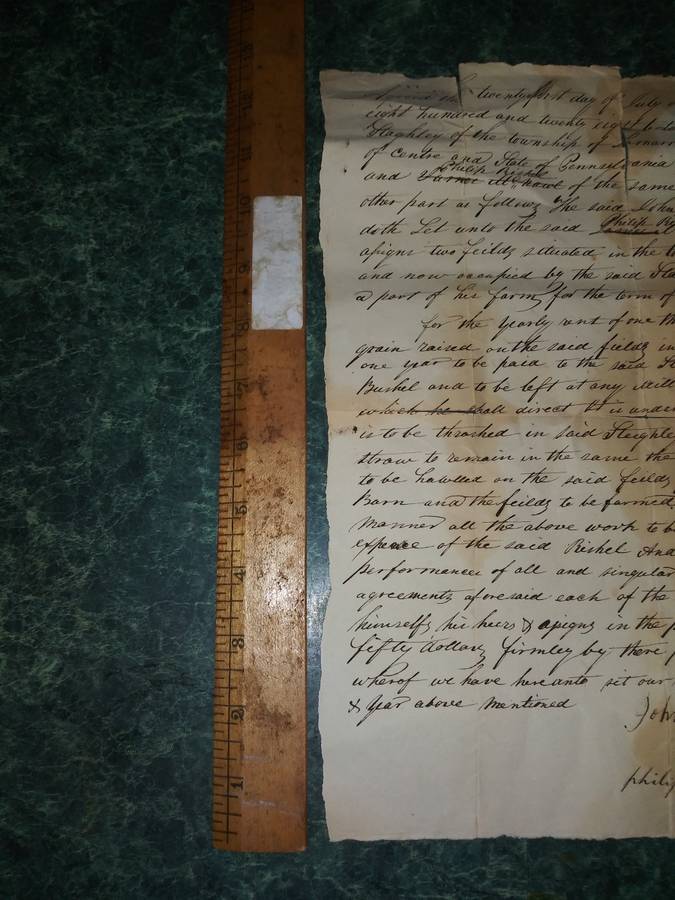 twenty first day of July
eight hundred and twenty eight
Staghley of the township of
of Centre and State of Pennsylvania
Philip Rishel
and of the same
other part as follows The said John
doth Let unto the said Philip
assigns two feilds situated in the
and now occupied by the said
a part of his farm for the term of
for the yearly rent of one
grain raised on the said feilds in
one year to be paid to the said
Bushel and to be left at any Mill
which he shall direct It is under
is to be thrashed in said Steighle
straw to remain in the same the
to be hawlled on the said feilds
Barn and the feilds to be farmed
Manner all the above work to be
expence of the said Rishel And
performance of all and singular
agreements aforesaid each of the
himself, his heirs & assigns in the
fifty dollars firmley by these
wherof we have here unto set our
& year above mentioned
John
philip
12
11
10
9
8
7
6
5
4
3
2
1